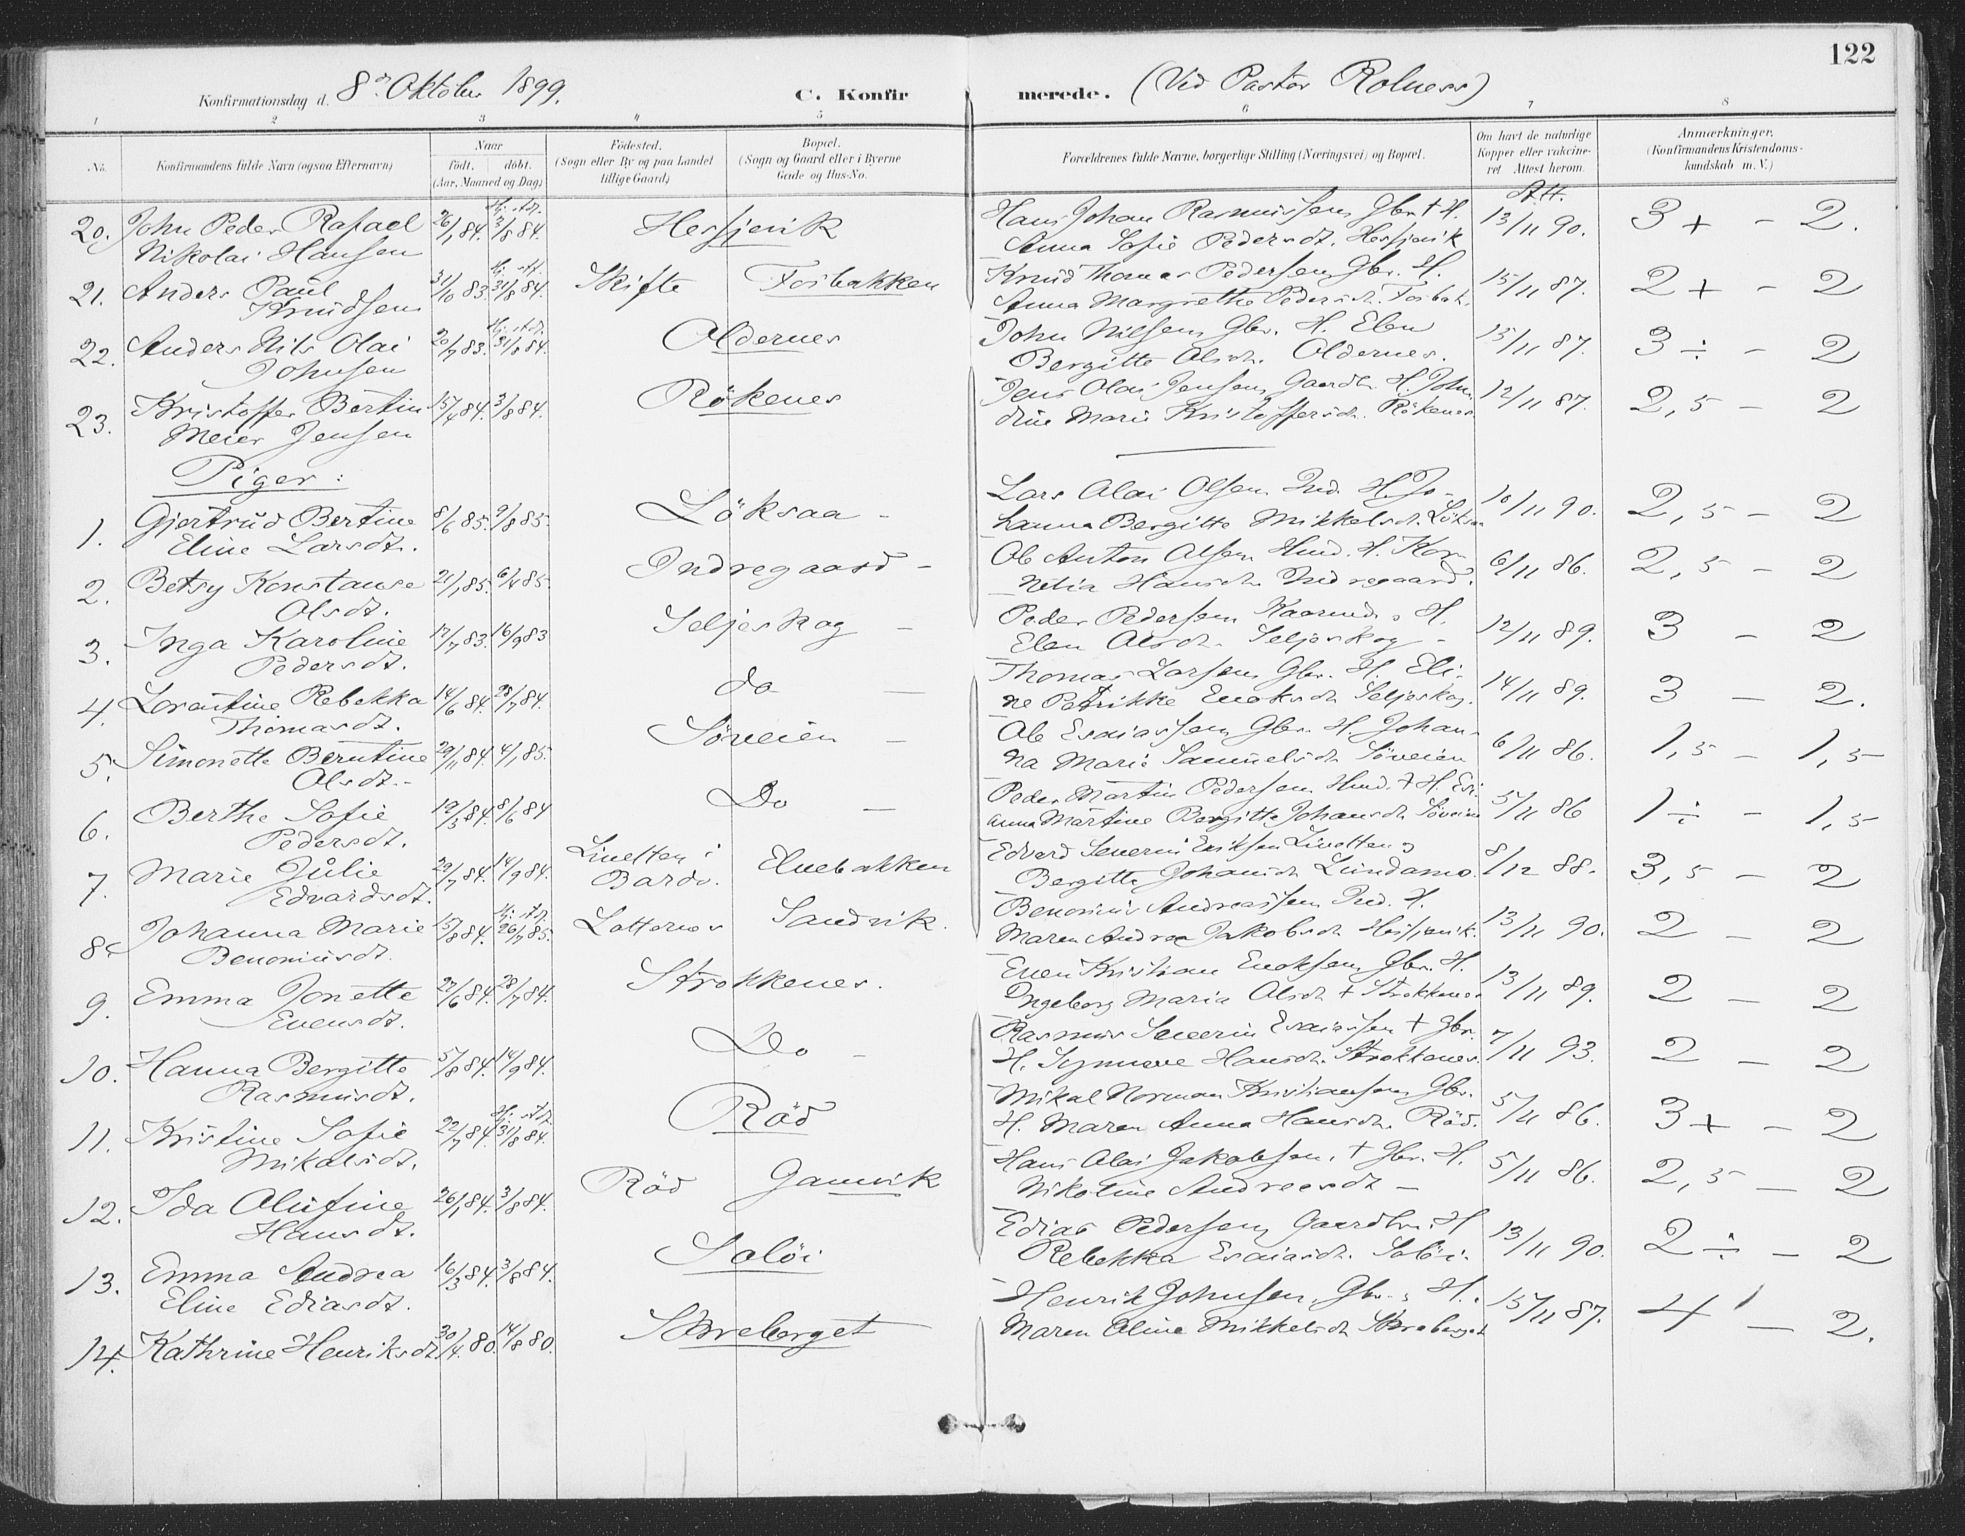 122
Konfirmationsdag d. 8de Oktober 1899. C. Konfirmerede. (Ved Pastor Rolness)
1 2 3 4 5 6 7 8
No. Konfirmandens fulde Navn (ogsaa Efternavn) Naar født, døbt. (Aar, Maaned og Dag) Fødested. (Sogn eller By og paa Landet tillige Gaard) Bopæl. (Sogn og Gaard eller i Byerne Gade og Hus-No. Forældrenes fulde Navne, borgerlige Stilling (Næringsvei) og Bopæl. Om havt de naturlige Kopper eller vakcineret Attest herom. Anmærkninger. (Konfirmandens Kristendomskundskab m. V.)
20. John Peder Rafael 26/1 84. Hj. dbt. 3/8 84. Hessjevik Hans Johan Rasmussen Gbr. + H. Att. 13/11 90. 3 + - 2.
Nikolai Hansen Anna Sofie Pedersdt. Hessjevik
21. Anders Paul 31/10 83. 31/8 84. Skifte Fosbakken Knud Thomas Pedersen Gbr. H. 15/11 87. 2 + - 2
Knudsen Anna Margrethe Pedersdt. Fosbak.
22. Anders Nils Olai 20/7 83. 31/8 84. Oldernes John Nilsen Gbr. H. Elen 15/11 87. 3 ÷ - 2
Johnsen Bergitte Olsdt. Oldernes.
23. Kristoffer Bertin 15/4 84. 3/8 84. Rökenes Jens Olai Jensen Gaardb. H. John 12/11 87. 2,5 - 2
Meier Jensen dine Marie Kristoffersdt. Rökenes
Piger:
1. Gjertrud Bertine 8/6 85. 9/8 85. Löksaa - Lars Olai Olsen Ind. H. Jo- 10/11 90. 2,5 - 2
Eline Larsdt. hanna Bergitte Mikkelsdt. Löksaa
2. Betsy Konstanse 21/1 85. 6/4 85. Indregaard - Ole Anton Olsen Hmd. H. Kor- 6/11 86. 2,5 - 2
Olsdt. nelia Hansdt. Indregaard.
3. Inga Karoline 17/7 83. 16/9 83 Seljeskog - Peder Pedersen Kaarmd. H. 12/11 89. 3 - 2
Pedersdt. Elen Olsdt. Seljeskog -
4. Lorentine Rebekka 14/6 84. 28/7 84. do - Thomas Larsen Gbr. H. Eli- 14/11 89. 3 - 2.
Thomasdt. ne Patrikke Enoksdt. Seljeskog.
5. Simonette Berntine 29/11 84. 4/1 85. Söveien - Ole Esaiassen Gbr. H. Johan- 6/11 86. 1,5 - 1,5
Olsdt.- na Marie Samuelsdt. Söveien
6. Berthe Sofie 19/3 84. 8/6 84 Do - Peder Martin Pedersen Hmd. + H. 5/11 86 1 ÷ - 1,5
Pedersdt. anna Martine Bergitte Johansdt. Söveien
7. Marie Julie 29/7 84. 14/9 84. i Elvebakken Edvard Severin Eriksen 8/12 88. 3,5 - 2
Edvardsdt. Bardo. Bergitte Johansdt. Lundamo.
8. Johanna Marie 15/8 84. Hj. dbt. 26/7 85. Sandvik. Benonius Andreassen Ind. H. 13/11 90. 2 - 2
Benoniusdt. Maren Andrea Jakobsdt. Hessjevik.
9. Emma Jonette 27/6 84. 28/7 84. Strokkenes. Even Kristian Enoksen Gbr. H. 13/11 89. 2 - 2
Evensdt. Ingeborg Maria Olsdt. + Strokkenes
10. Hanna Bergitte 5/8 84. 14/9 84. Do - Rasmus Severin Esaiassen + Gbr. 7/11 93. 2 - 2
Rasmusdt. H. Synnøve Hansdt. Strokkenes.
11. Kristine Sofie 22/7 84. Hj. dbt. 31/8 84. Röd Mikal Norman Kristiansen Gbr. 5/11 86. 3 + - 2
Mikalsdt. H. Maren Anna Hansdt. Röd.
12. Ida Olufine 26/1 84. 3/8 84. Röd Gamvik Hans Olai Jakobsen. + Gbr. H. 5/11 86. 2,5 - 2
Hansdt. Nikoline Andreasdt -
13. Emma Andrea 16/3 84. 3/8 84. Salöi Edias Pedersen Gaardbr. H 13/11 90. 2 ÷ - 2
Eline Ediasdt. Rebekka Esaiasdt. Salöi.
14. Kathrine Henriksdt 30/4 80. 14/8 80. Skreberget Henrik Johnsen Gbr. H. 15/11 87. 4 - 2.
Maren Oline Mikkelsdt Skreberget